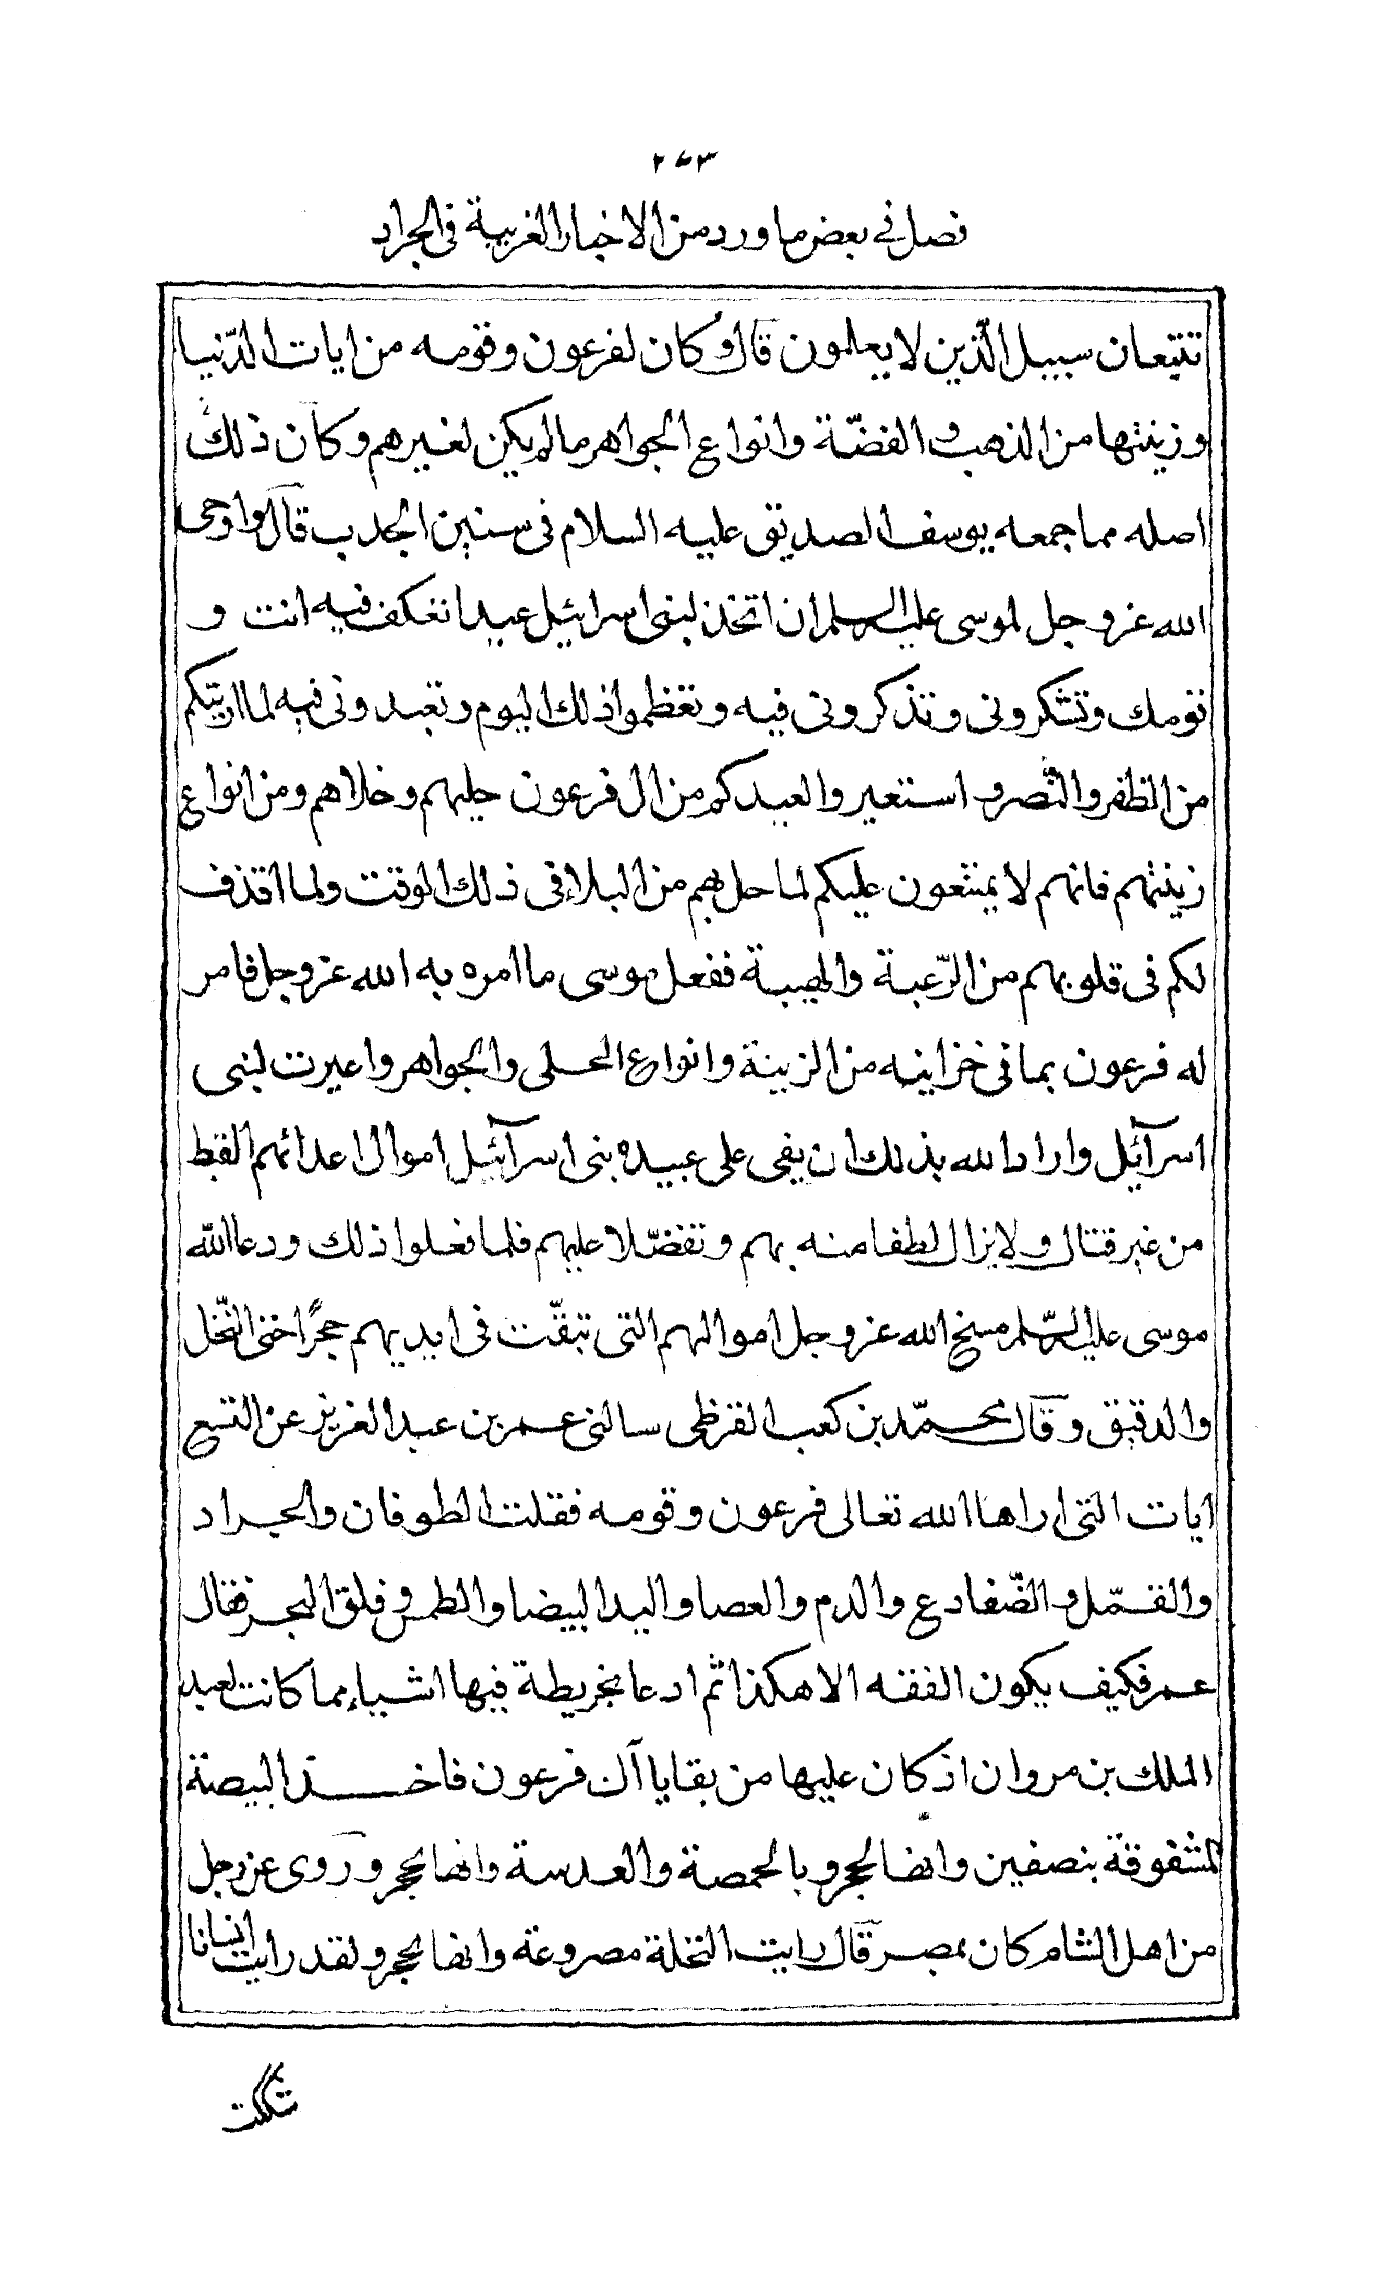 ٢٧٣
فصل في بعض ما ورد من الاخبار الغريبة في الجراد
تتبعان سبيل الّذين لا يعلمون قال وكان لفرعون وقومه من ايات الدّنيا
وزينتها من الذهب والفضّة وانواع الجواهر مالم يكن لغيرهم وكان ذلك
اصله مما جمعه يوسف الصديق عليه السلام فى سنين الجدب قال واوحى
الله عز وجل لموسى عليه السلم ان اتخذ لبنى اسرائيل عيدا تعكف فيه انت و
قومك وتشكرونى وتذكرونى فيه وتعظموا ذلك اليوم وتعبدونى فيه لما اريتكم
من الظفر والنّصر و استعيروا لعيدكم من ال فرعون حليهم وحلاهم ومن انواع
زينتهم فانهم لا يمتنعون عليكم لما حل بهم من البلاء فى ذلك الوقت ولما اقذف
لكم فى قلوبهم من الرّعبة والهيبة ففعل موسى ما امره به الله عز وجل فامر
له فرعون بما فى خزاينه من الزينة وانواع الحلى والجواهر واعيرت لبنى
اسرآئيل واراد الله بذلك ان يفى على عبيده بنى اسرآئيل اموال اعدائهم القبط
من غير قتال ولا نزال لطفا منه بهم وتفضّلا عليهم فلما فعلوا ذلك ودعا الله
موسى عليه السّلم مسخ الله عز وجل اموالهم التى تبقّت فى ايديهم حجرًا حتى النّخل
والدقيق وقال محمّد بن كعب القرظى سالنى عمر بن عبد العزيز عن التسع
ايات التى اراها الله تعالى فرعون وقومه فقلت الطوفان والجراد
والقمّل والضّفادع والدم والعصا واليد البيضا والطمس وفلق البحر فقال
عمر فكيف يكون الفقه الا هكذا ثم ادعا بخريطة فيها اشياء مما كانت لعبد
الملك بن مروان اذ كان عليها من بقايا آل فرعون فاخذ البيصة
لمشقوقة بنصفين وانها لحجر وبالحمصة والعدسة وانها لحجر وروى عن رجل
من اهل الشام كان بمصر قال رايت النخلة مصروعة وانها لحجر ولقد رايت انسانا